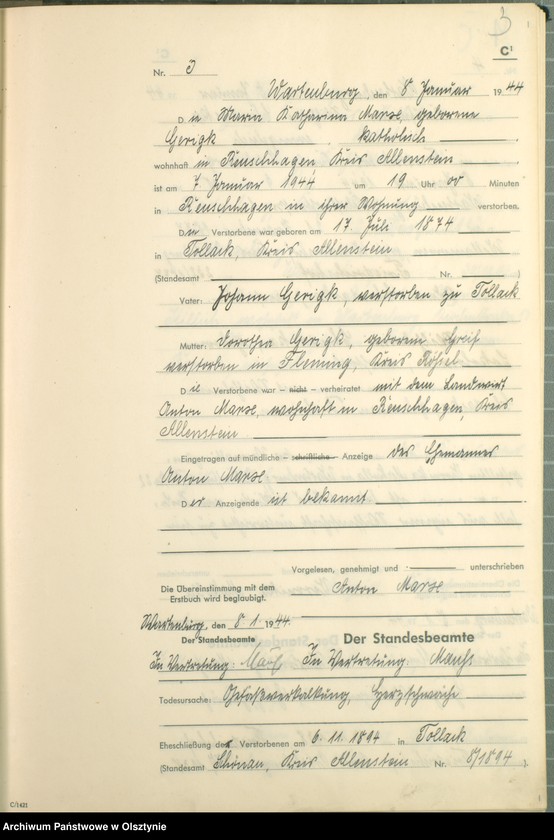 3
C¹
Nr. 3
Wartenburg, den 8 Januar 1944
Die Maria Katharina Marse, geborene
Gerigk katholisch
wohnhaft in Reuschhagen Kreis Allenstein
ist am 7 Januar 1944 um 19 Uhr 00 Minuten
in Reuschhagen in ihrer Wohnung verstorben.
Die Verstorbene war geboren am 17. Juli 1874
in Tollack Kreis Allenstein
(Standesamt Nr. )
Vater: Johann Gerigk, verstorben zu Tollack
Mutter: Dorothea Gerigk, geborene Greif
verstorben in Fleming, Kreis Rößel
Die Verstorbene war – nicht – verheiratet mit dem Landwirt
Anton Marse, wohnhaft in Reuschhagen, Kreis
Allenstein
Eingetragen auf mündliche – schriftliche – Anzeige des Ehemannes
Anton Marse
Der Anzeigende ist bekannt
Vorgelesen, genehmigt und unterschrieben
Die Übereinstimmung mit dem
Erstbuch wird beglaubigt.
Anton Marse
Wartenburg, den 8. 1. 1944
Der Standesbeamte
Der Standesbeamte
In Vertretung:
In Vertretung:
Todesursache: Gefäßverkalkung, Herzschwäche
Eheschließung der Verstorbenen am 6. 11. 1894 in Tollack
(Standesamt Schönau, Kreis Allenstein Nr. 8/1894 ).
C/1421
Archiwum Państwowe w Olsztynie